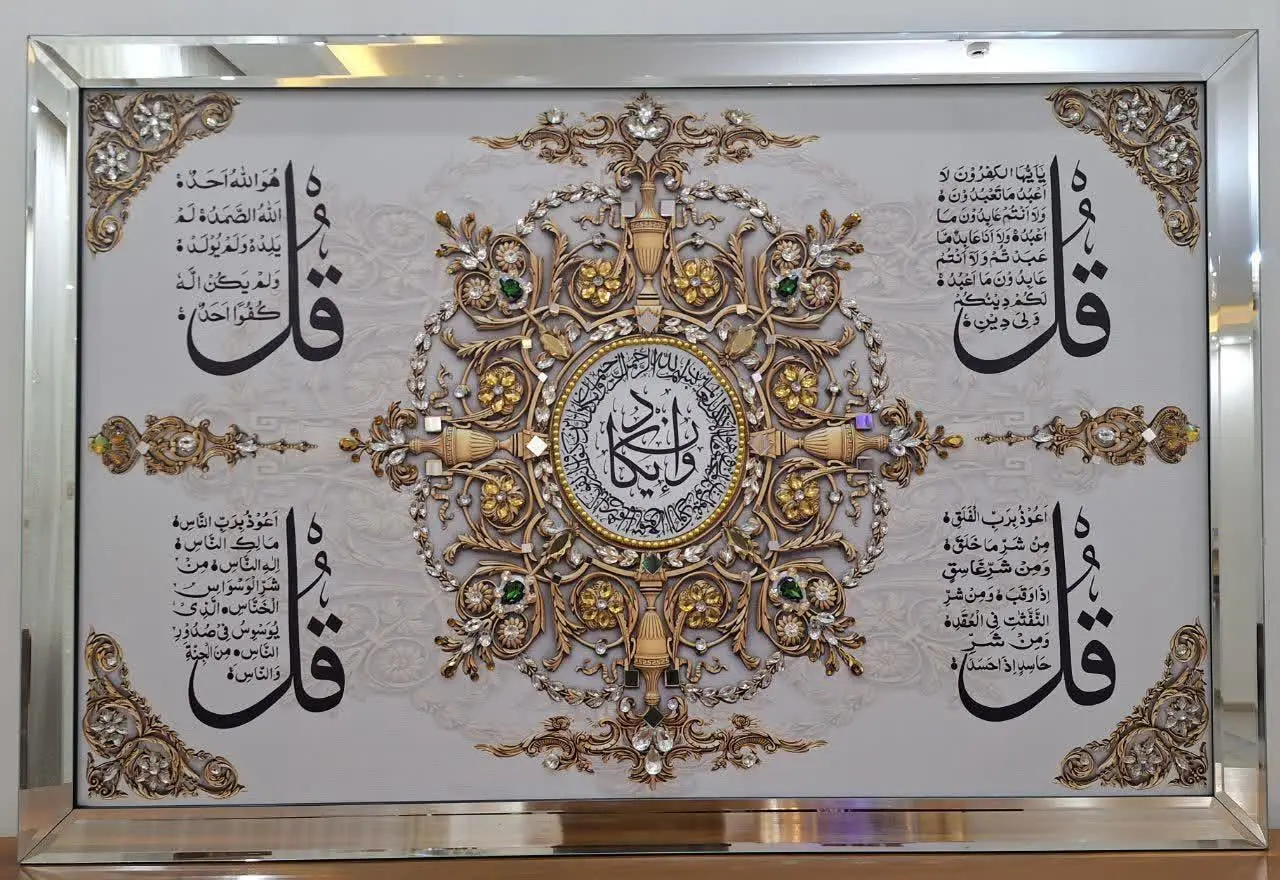 قُلْ
يَآاَيُّهَا الْكٰفِرُوْنَ لَا
اَعْبُدُ مَا تَعْبُدُوْنَ
وَلَا اَنْتُمْ عَابِدُوْنَ مَا
اَعْبُدُ وَلَا اَنَا عَابِدٌ مَّا
عَبَدْتُّمْ وَلَا اَنْتُمْ
عَابِدُوْنَ مَا اَعْبُدُ
لَكُمْ دِيْنُكُمْ
وَلِىَ دِيْنِ
قُلْ
هُوَ اللّٰهُ اَحَدٌ
اَللّٰهُ الصَّمَدُ لَمْ
يَلِدْ وَلَمْ يُوْلَدْ
وَلَمْ يَكُنْ لَّهُ
كُفُوًا اَحَدٌ
بسم الله الرحمن الرحيم
وَإِن يكاد
قُلْ
اَعُوْذُ بِرَبِّ الْفَلَقِ
مِنْ شَرِّ مَا خَلَقَ
وَمِنْ شَرِّ غَاسِقٍ
اِذَا وَقَبَ وَمِنْ شَرِّ
النَّفّٰثٰتِ فِى الْعُقَدِ
وَمِنْ شَرِّ
حَاسِدٍ اِذَا حَسَدَ
قُلْ
اَعُوْذُ بِرَبِّ النَّاسِ
مَالِكِ النَّاسِ
اِلٰهِ النَّاسِ مِنْ
شَرِّ الْوَسْوَاسِ
الْخَنَّاسِ الَّذِىْ
يُوَسْوِسُ فِىْ صُدُوْرِ
النَّاسِ مِنَ الْجِنَّةِ
وَالنَّاسِ